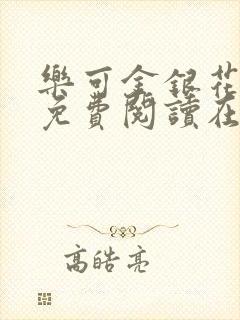 樂可金銀花
免費閱讀在
高皓亮